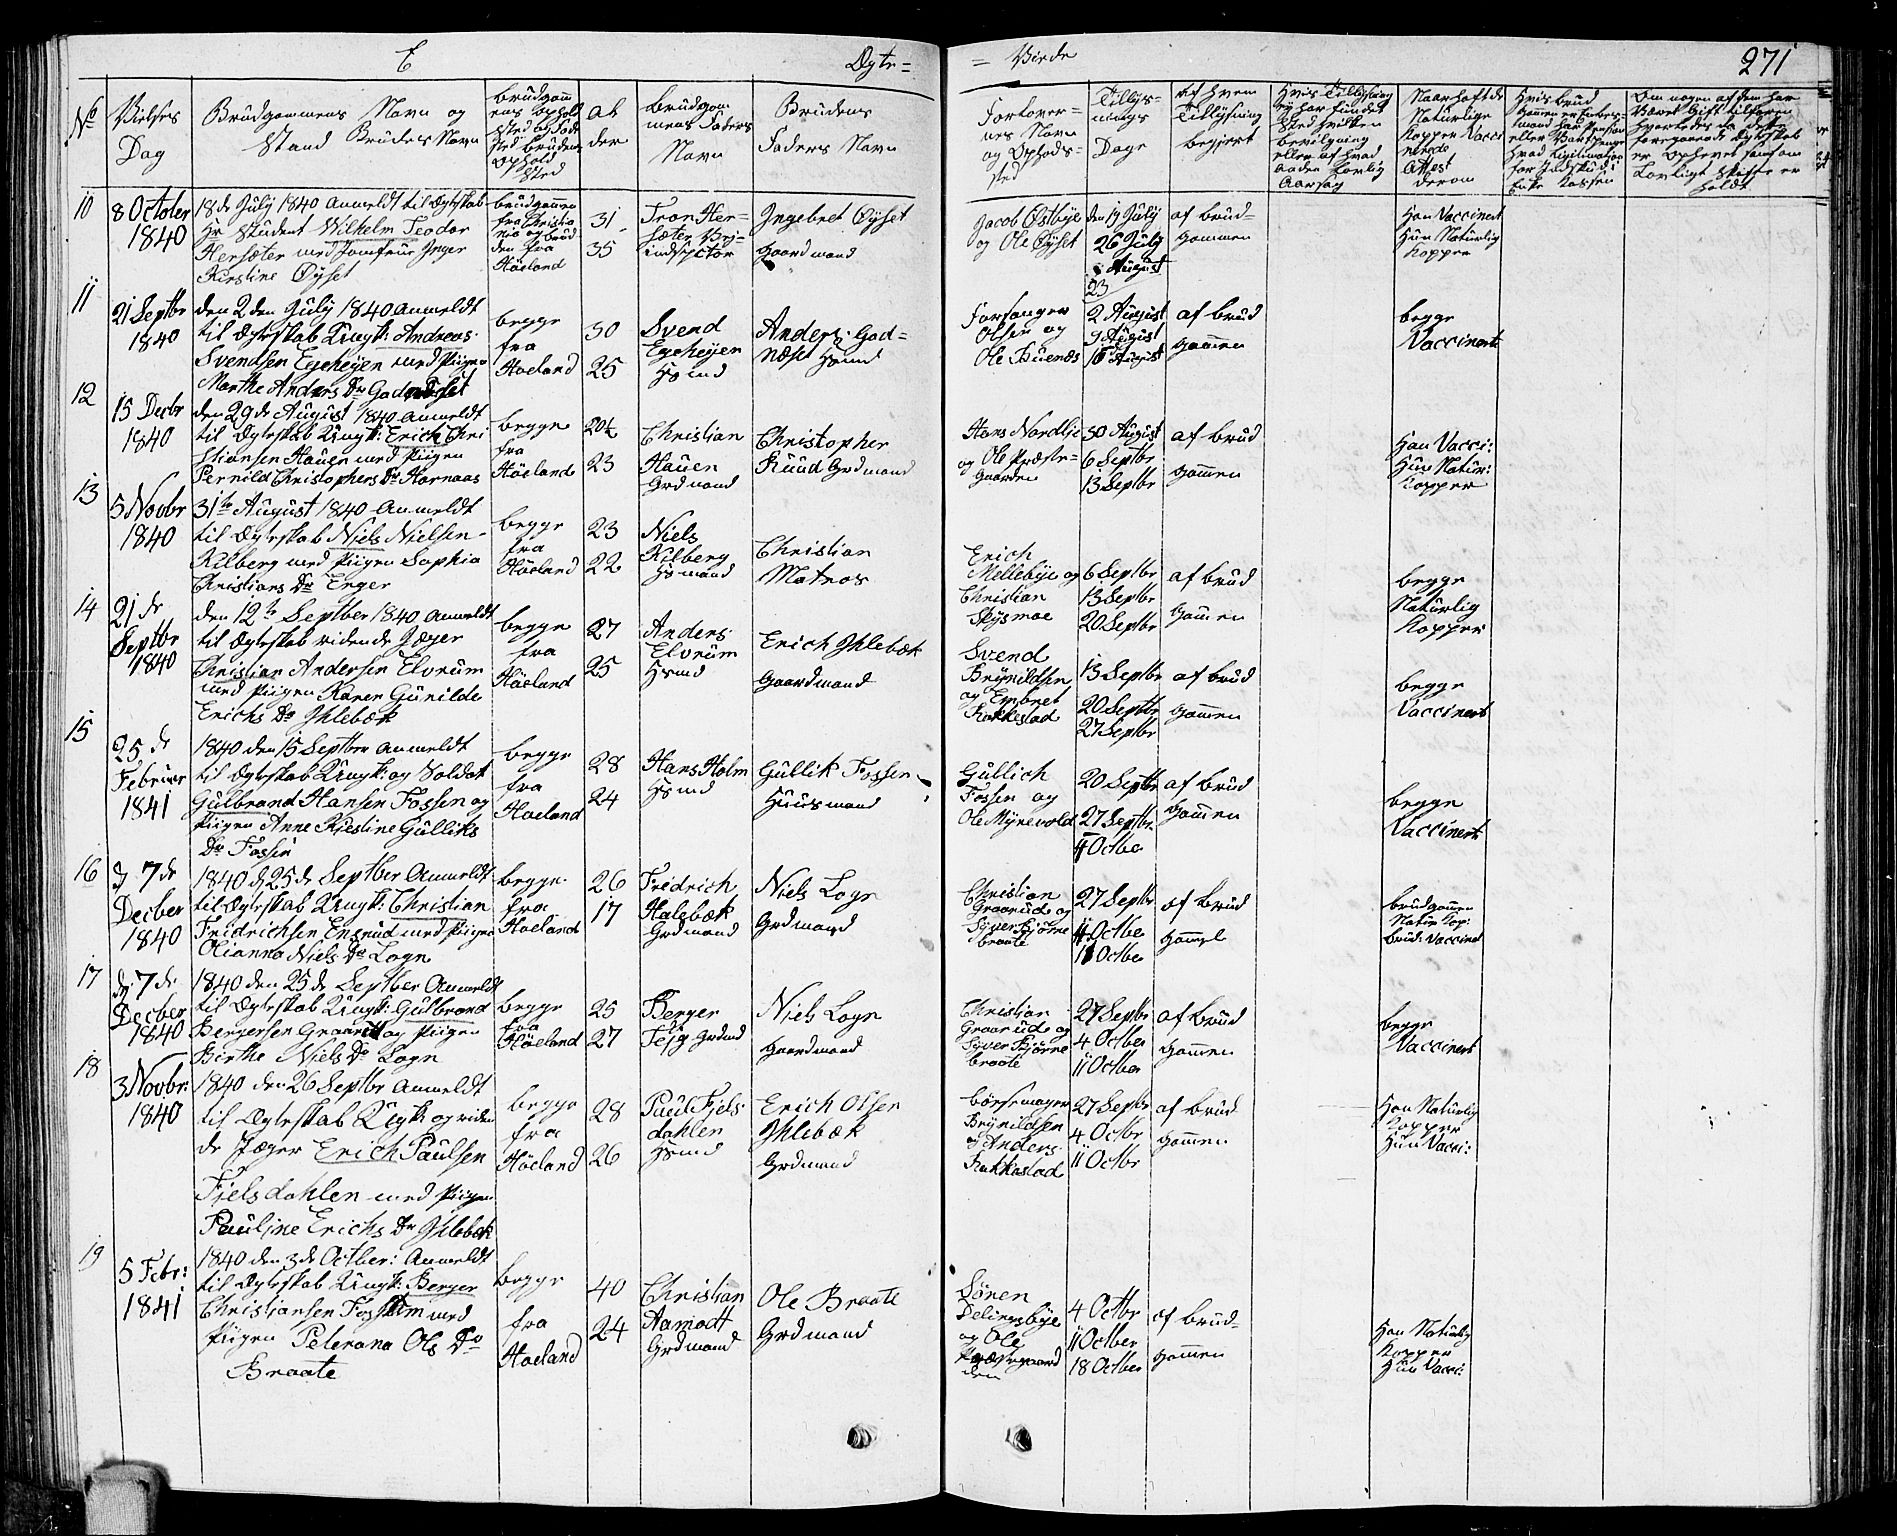 E Ægte=
= Viede 271
No
Vielses
Dag
Brudgommens Navn og
Stand Brudes Navn
brudgom
ens Ophold
sted og Føde
sted brudens
Ophold
Sted
Al
der
brudgom
mens Faders
Navn
Brudens
Faders Navn
Forlover=
nes Navn
og Ophods=
sted
Tillys=
nings
Dage
af hvem
Tillysning
begjert
Hvis Tillysning
ej har fundet
Sted hvilken
bevilgning
eller af hvad
anden Lovlig
Aarsag
Naar hafte de
Naturlige
Kopper Vacci
nerede
Attest
derom
Hvis brud
gommen er Embeds
mand
eller
hvad Legitimation
for Indskud i
Enke Kassen
Om nogen af dem har
Været Gift tilforn
hvorledes da dette
foregaaende Ægteskab
er ophevet samt om
Lovligt Skifte er
holdt
10
8 October
1840
18de July 1840 Anmeldt til Ægteskab
Hr Student Wilhelm Teodor
Hersæter med Jomfrue Inger
Kirstine Øyset
brudgommen
fra Christia
nia og brud
den fra
Höeland
31
35
Tron Her=
sæter Vej=
indspctor
Ingebret Øyset
Gaardmand
Jacob Østbye
og Ole Øyset
den 19 July
26 July
August
23
af brud=
gommen
Han Vaccinert
Hun Naturlig
Kopper
11
21 Septbr
1840
den 2den July 1840 Anmeldt
til Ægteskab Ungk: Andreas
Svendsen Egeheyen med Pigen
Marthe Anders Dr Godnæset
begge
fra
Hoeland
30
25
Svend
Egeheyen
Hsmd
Anders: God=
næset Hsmd
Forsanger
Olsen og
Ole Buenæs
2 August
9 August
16 August
af brud
gommen
begge
Vaccinert
12
15 Decbr
1840
den 29de August 1840 Anmeldt
til Ægteskab Ungk: Erich Chri
stiansen Hauen med Pigen
Pernild Christophers Dr Hornaas
begge
fra
Höeland
20½
23
Christian
Hauen
Grdmand
Christopher
Ruud Grdmand
Hans Nordlie
og Ole Præste=
Gaarden
30 August
6 Septbr
13 Septbr
af brud
gommen
Han Vacci:
Hun Natur:
Kopper
13
5 Novbr
1840
31te August 1840 Anmeldt
til Ægteskab Niels Nielsen
Kilberg med Pigen Sophia
Christians Dr Enger
begge
fra
Höeland
23
22
Niels
Kilberg
Hsmand
Christian
Matros
Erich
Mellebye og
Christian
Skysmoe
6 Septbr
13 Septbr
20 Septbr
af brud
gommen
begge
Naturlig
Kopper
14
21de
Septbr
1840
den 12te Septber 1840 Anmeldt
til Ægteskab ridende Jæger
Christian Andersen Elvrum
med Pigen Karen Gunilde
Erichs Dr Ihlebæk
begge
fra
Höeland
27
25
Anders
Elvrum
Hsmd
Erich Ihlebæk
Gaardmand
Svend
Brynildsen
og Embret
Kakkestad
13 Septbr
20 Septbr
27 Septbr
af brud
gommen
begge
Vaccinert
15
25de
Februar
1841
1840 den 15 Septber Anmeldt
til Ægteskab Ungk: og Soldat
Gulbrand Hansen Fossen og
Pigen Anne Kjestine Gulliks
Dr Fossen
begge
fra
Hoeland
28
24
Hans Holm
Hsmd
Gullik Fossen
Huusmand
Gullich
Fossen og
Ole Myrevold
20 Septbr
27 Septbr
4 Octber
af brud
gommen
begge
Vaccinert
16
d 7de
Decber
1840
1840 d 25de Septber Anmeldt
til Ægteskab Ungk: Christian
Fridrichsen Ensrud med Pigen
Olianna Niels Dr Logn
begge
fra
Hoeland
26
17
Fridrich
Halebæk
Grdmand
Niels Logn
Grdmand
Christian
Graarud og
Syver Bjørne
braate
27 Septbr
4 Octber
11 Octber
af brud
gommel
brudgommen
Natur Kop:
brud: Vaccined
17
d: 7de
Decber
1840
1840 den 25de Septber Anmeldt
til Ægteskab Ungk: Gulbrand
Bergersen Graarud og Pigen
Birthe Niels Dr Logn
begge
fra
Höeland
25
27
Berger
Tejg Grdmd
Niels Logn
Gaardmand
Christian
Graarud og
Syver Bjørne
braate
27 Septbr
4 Octber
11 Octber
af brud
gommen
begge
Vaccinert
18
3 Novbr:
1840
1840 den 26 Septbr Anmeldt
til Ægteskab Ungk og riden
de Jæger Erich Paulsen
Fjelsdahlen med Pigen
Pauline Erichs Dr Ihlebæk
begge
fra
Höeland
28
26
Paul Fjels
dahlen
Hsmd
Erich Olsen
Ihlebæk
Grdmand
børsemager
Brynildsen
og Anders
Kakkestad
27 Septbr
4 Octbr
11 Octbr
af brud
gommen
Han Naturlig
Kopper
Hun Vacci:
19
5 Febr:
1841
1840 den 3de Octber: Anmeldt
til Ægteskab Ungk: Berger
Christiansen Fossum med
Pigen Peterana Ols Dr
Braate
begge
fra
Hoeland
40
24
Christian
Aamodt
Grdmand
Ole Braate
Grdmand
Sören
Delingsbye
og Ole
Præstegaard
den
4 Octbr
11 Octber
18 Octber
af brud=
gommen
Han Naturlig
Kopper
Hun Vacci: